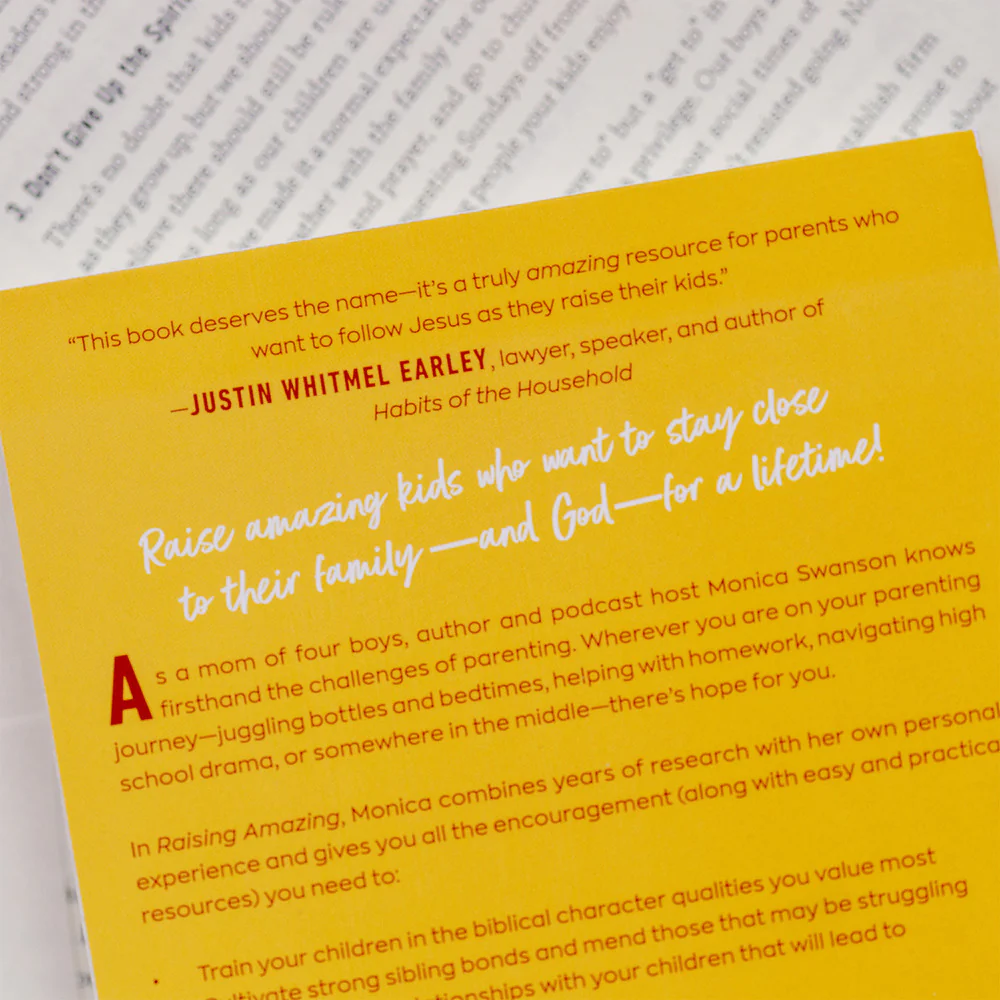 eaders
nd strong in th
3. Don't Give Up the Spir
There's no doubt that kids
as they grow up, but we should
elieve there should still be rul
long as our children are u
made it a normal expectat
ther with the family for
and prayer, and go to chu
enting Sundays off from
people your kids enjoy
ve to" but a "get to" in
privilege. Our boys
ost social times of
resisted going. No
stablish firm
prone to
about
"This book deserves the name—it's a truly amazing resource for parents who
want to follow Jesus as they raise their kids."
—JUSTIN WHITMEL EARLEY, lawyer, speaker, and author of
Habits of the Household
Raise amazing kids who want to stay close
to their family—and God—for a lifetime!
As a mom of four boys, author and podcast host Monica Swanson knows
firsthand the challenges of parenting. Wherever you are on your parenting
journey—juggling bottles and bedtimes, helping with homework, navigating high
school drama, or somewhere in the middle—there's hope for you.
In Raising Amazing, Monica combines years of research with her own personal
experience and gives you all the encouragement (along with easy and practica
resources) you need to:
• Train your children in the biblical character qualities you value most
Cultivate strong sibling bonds and mend those that may be struggling
elationships with your children that will lead to